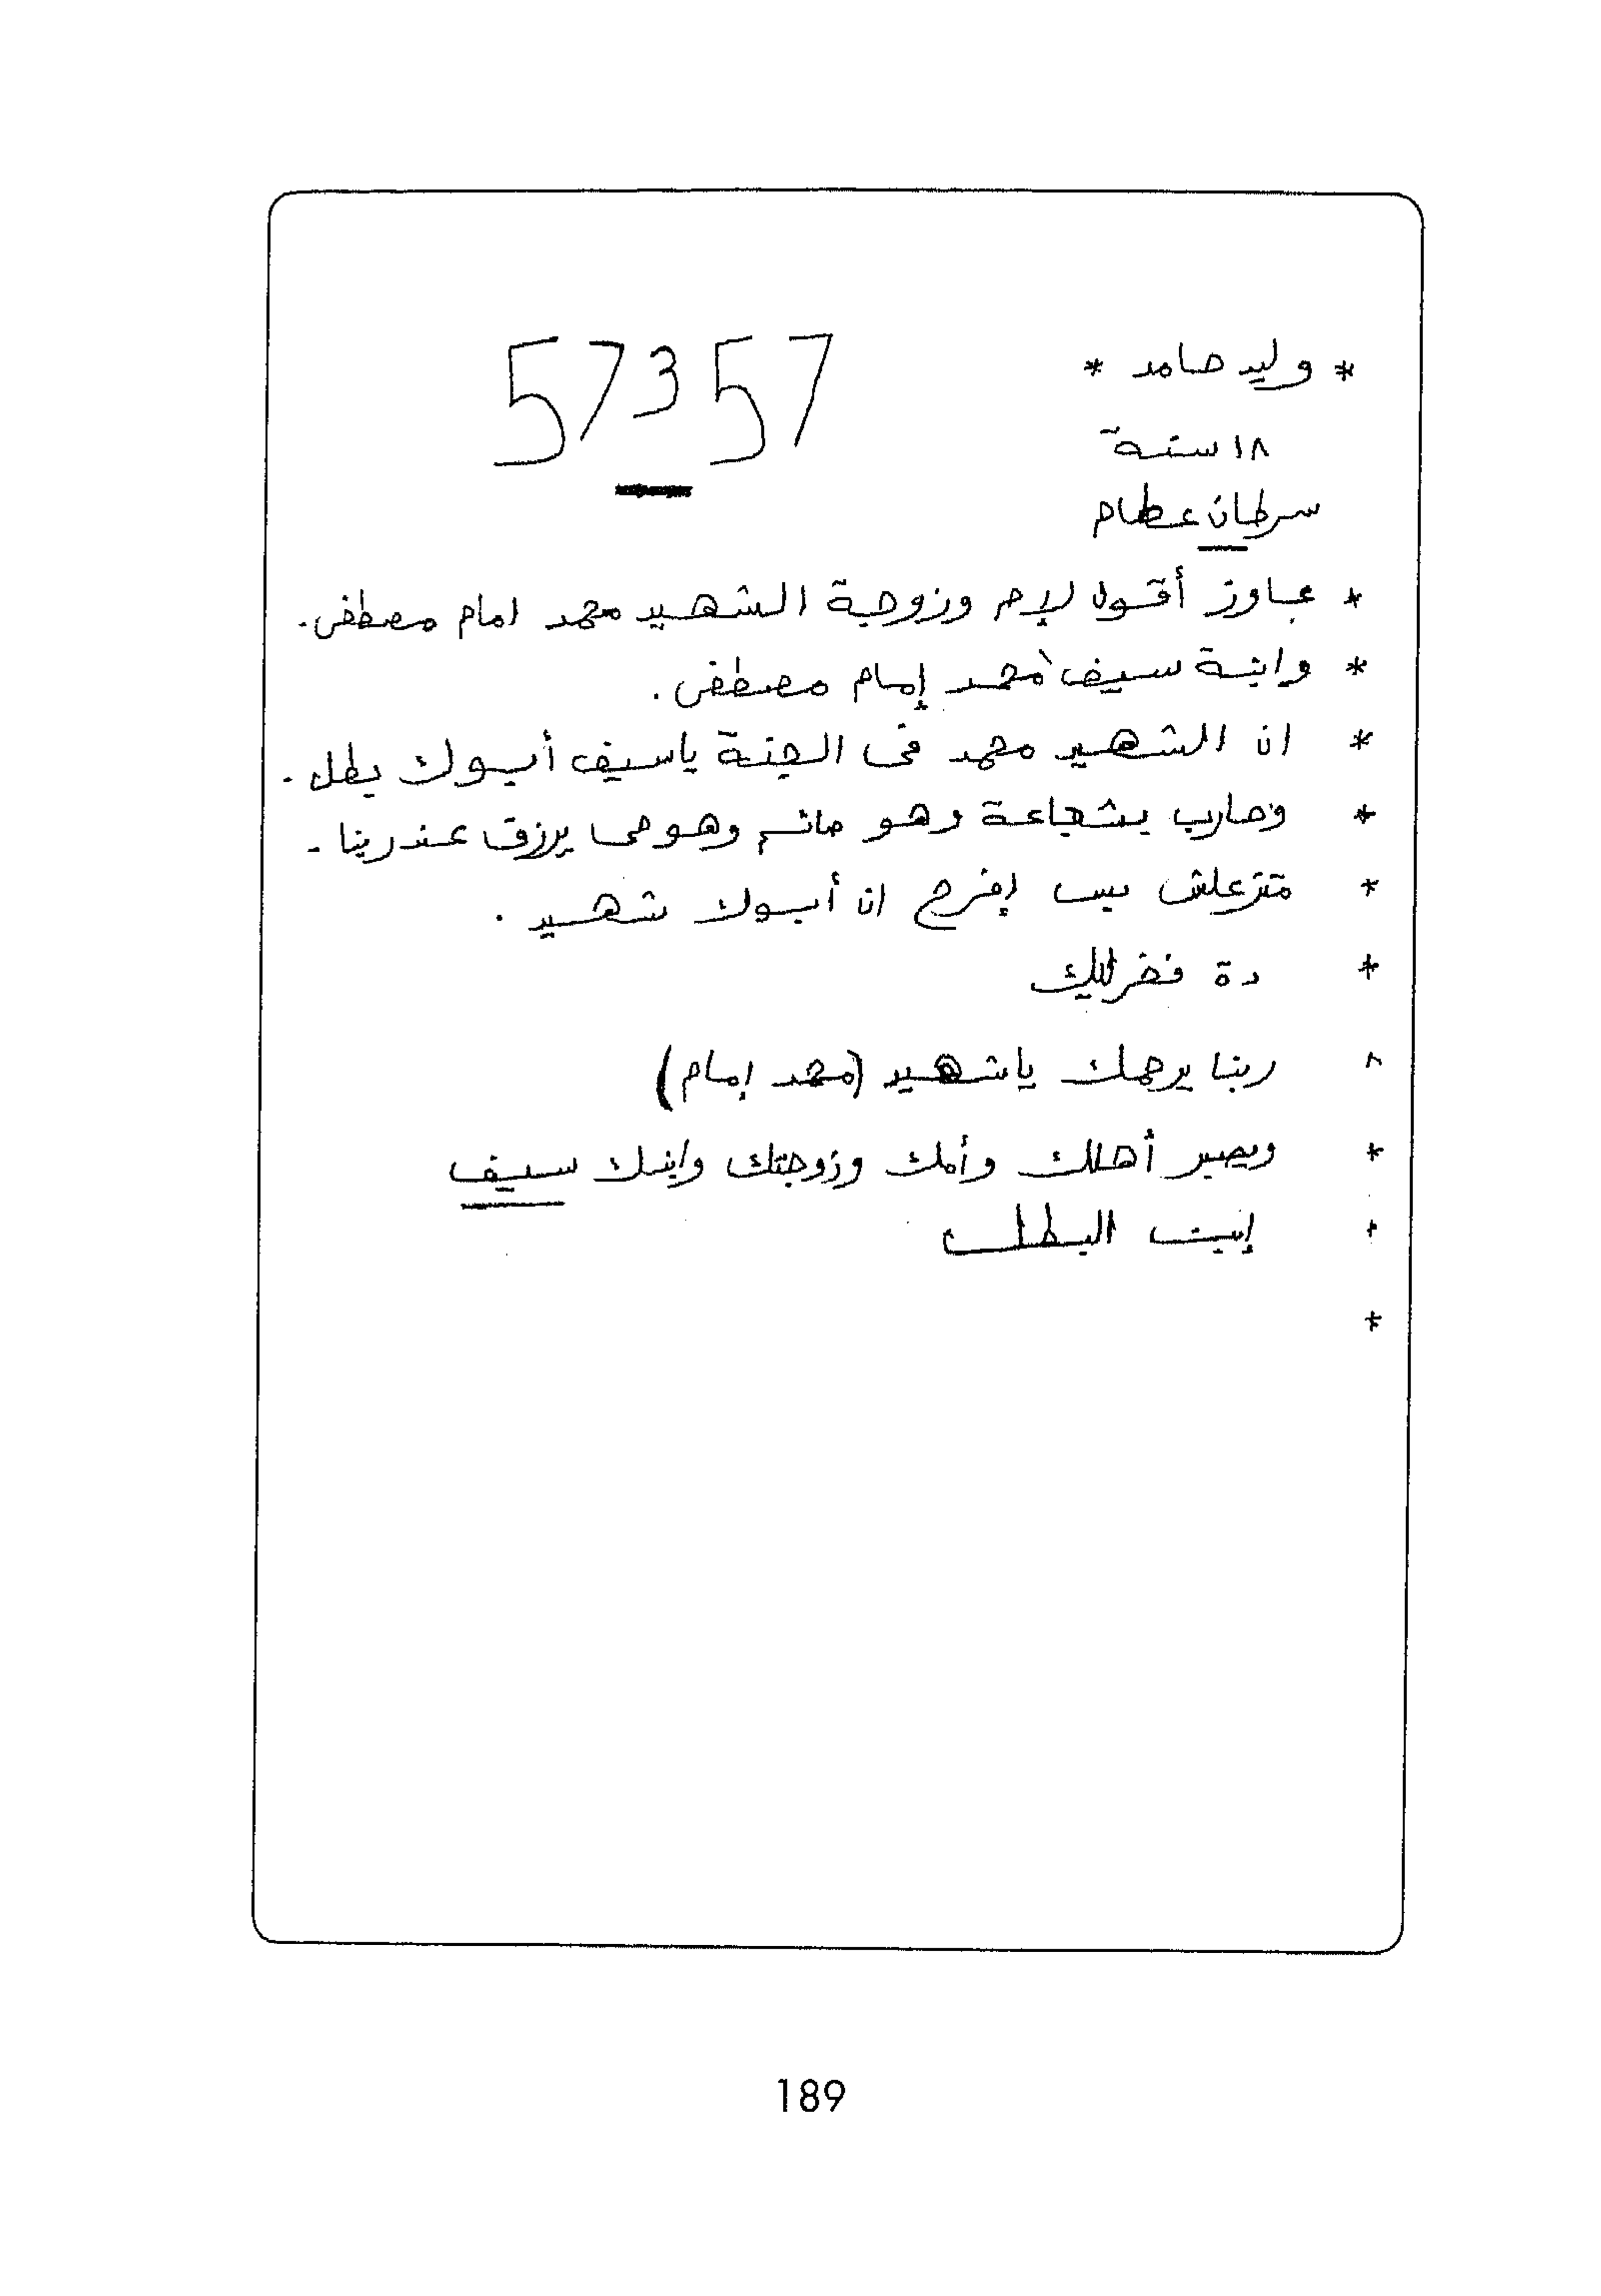 * وليد حامد *
57357
١٨ سنة
سرطان عظام
* عاوز أقول لإم وزوجة الشهيد محمد امام مصطفى.
* وابنة سيف محمد إمام مصطفى.
* ان الشهيد محمد فى الجنة ياسيف أبوك بطل.
* وحارب بشجاعة وهو صائم وهو حى يرزق عند ربنا.
* متزعلش بس إفرح ان أبوك شهيد.
* دة فخر لليك
* ربنا يرحمك ياشهيد (محمد إمام)
* ويصبر أهلك وأمك وزوجتك وابنك سيف
* إبيت البطل
*
189